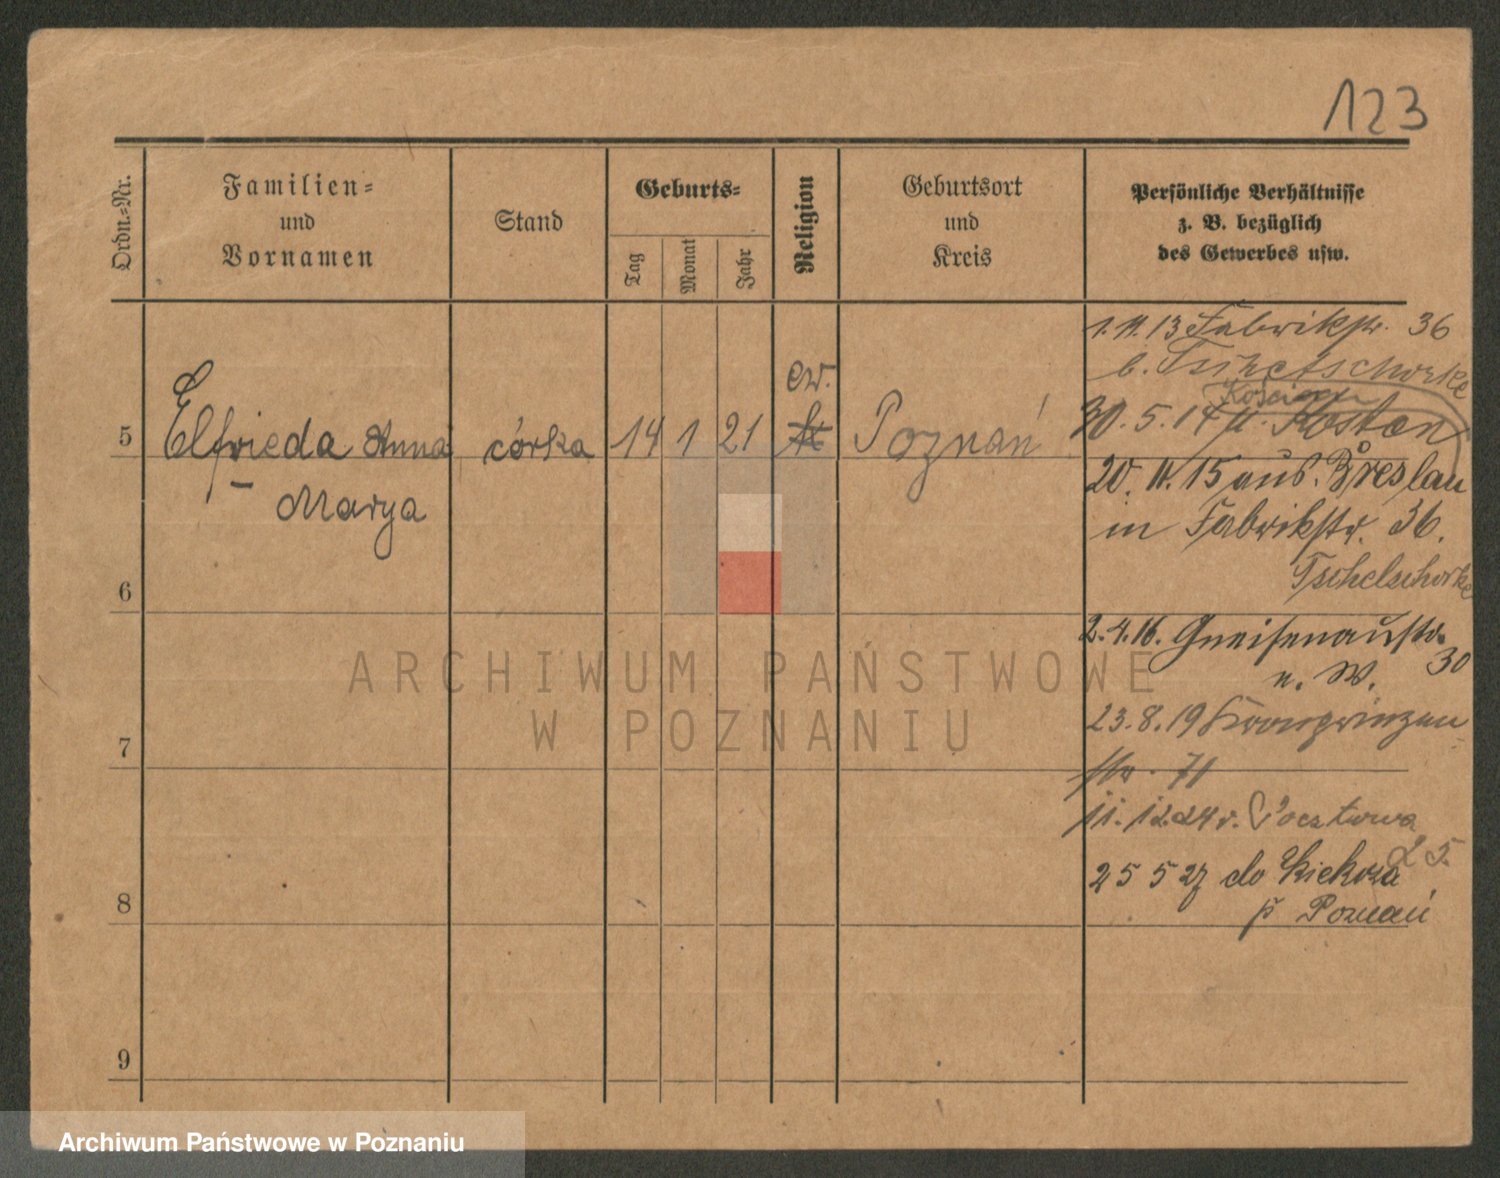 123
Ordn.-Nr.
Familien-
und
Vornamen
Stand
Geburts-
Tag
Monat
Jahr
Religion
Geburtsort
und
Kreis
Persönliche Verhältnisse
z. B. bezüglich
des Gewerbes usw.
5
Elfrieda Anna
Marya
córka
14 1 21
ew.
Poznań
1.11.13 Fabrikstr. 36
b. Tschetschorke
Kościan
30.5.14 n. Kosten
20.11.15 aus Breslau
in Fabrikstr. 36.
Tschelschorke
2.4.16. Gneisenaustr.
30
n. W.
23.8.19 Kronprinzen
str. 71
11.12.24 r. Pocztowa
25.
25 5 27 do Kiekrza
p Poznań
6
7
8
9
ARCHIWUM PAŃSTWOWE
W POZNANIU
Archiwum Państwowe w Poznaniu